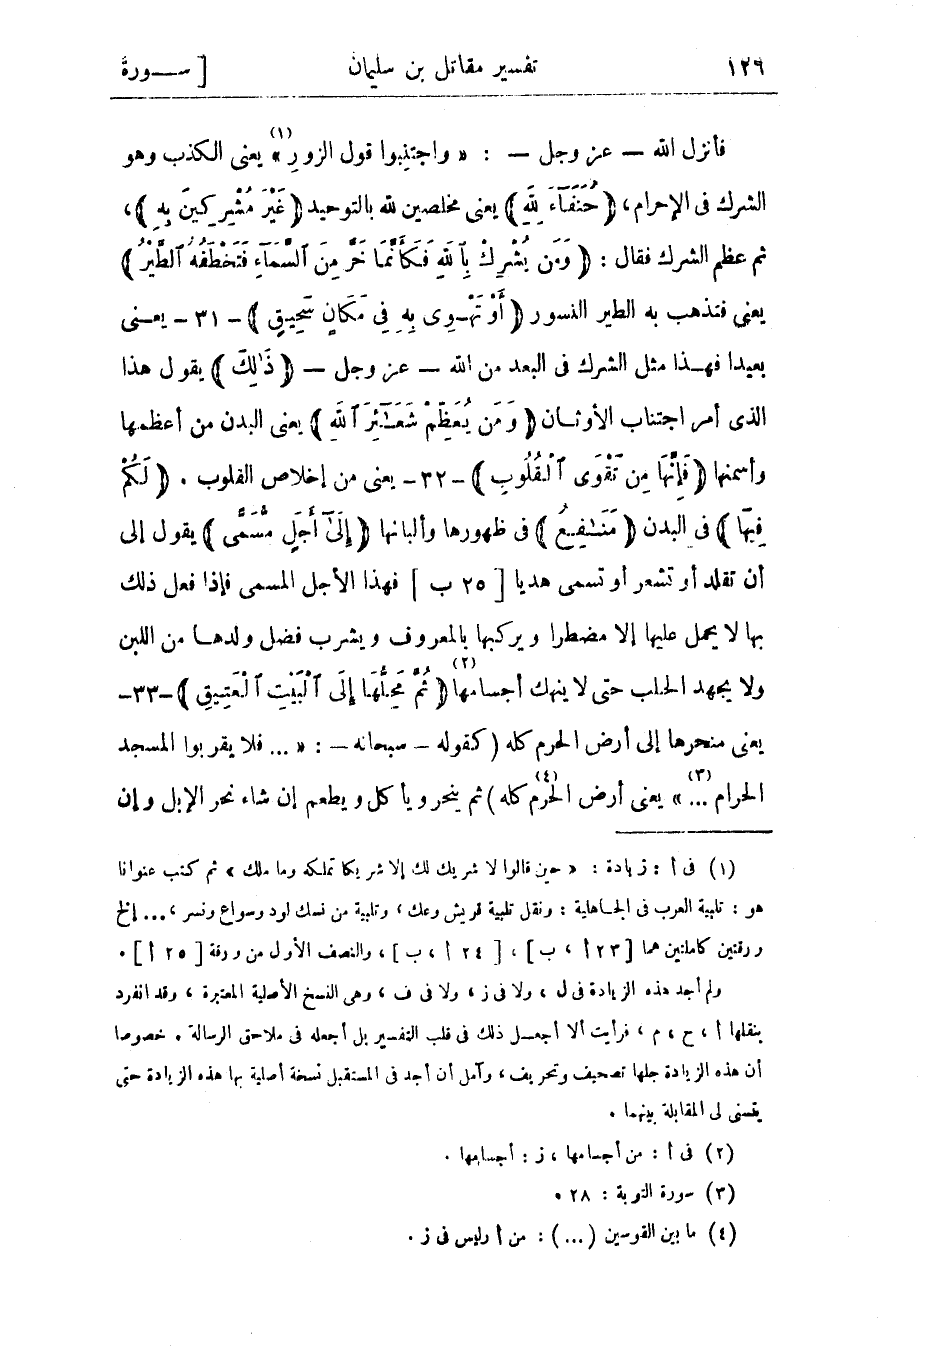 ١٢٦ تفسير مقاتل بن سليمان [ ســورة
فأنزل الله — عز وجل — : « واجتنبوا قول الزور (١) » يعنى الكذب وهو
الشرك فى الإحرام، ﴿ حُنَفَآءَ لِلَّهِ ﴾ يعنى مخلصين لله بالتوحيد ﴿ غَيْرَ مُشْرِكِينَ بِهِ ﴾،
ثم عظم الشرك فقال : ﴿ وَمَن يُشْرِكْ بِٱللَّهِ فَكَأَنَّمَا خَرَّ مِنَ ٱلسَّمَآءِ فَتَخْطَفُهُ ٱلطَّيْرُ ﴾
يعنى فتذهب به الطير النسور ﴿ أَوْ تَهْوِى بِهِ فِى مَكَانٍ سَحِيقٍ ﴾ – ٣١ – يعـنى
بعيدا فهـذا مثل الشرك فى البعد من الله — عز وجل — ﴿ ذَٰلِكَ ﴾ يقول هذا
الذى أمر اجتناب الأوثـان ﴿ وَمَن يُعَظِّمْ شَعَـٰٓئِرَ ٱللَّهِ ﴾ يعنى البدن من أعظمها
وأسمنها ﴿ فَإِنَّهَا مِن تَقْوَى ٱلْقُلُوبِ ﴾ – ٣٢ – يعنى من إخلاص القلوب . ﴿ لَكُمْ
فِيهَا ﴾ فى البدن ﴿ مَنَـٰفِعُ ﴾ فى ظهورها وألبانها ﴿ إِلَىٰٓ أَجَلٍ مُّسَمًّى ﴾ يقول إلى
أن تقلد أو تشعر أو تسمى هديا [ ٢٥ ب ] فهذا الأجل المسمى فإذا فعل ذلك
بها لا يحمل عليها إلا مضطرا ويركبها بالمعروف ويشرب فضل ولدهـا من اللبن
ولا يجهد الحلب حتى لا ينهك أجسامها (٢) ﴿ ثُمَّ مَحِلُّهَا إِلَى ٱلْبَيْتِ ٱلْعَتِيقِ ﴾ – ٣٣ –
يعنى منحرها إلى أرض الحرم كله ( كقوله – سبحانه – : « ... فلا يقربوا المسجد
الحرام ... (٣) » يعنى أرض الحرم كله (٤) ) ثم ينحر ويأكل ويطعم إن شاء نحر الإبل وإن
(١) فى أ : زيادة : « حين قالوا لا شريك لك إلا شريكا تملكه وما ملك » ثم كتب عنوانا
هو : تلبية العرب فى الجـاهلية : ونقل تلبية قريش وعك، وتلبية من نسك لود وسواع ونسر، ... إلخ
ورقتين كاملتين هما [ ٢٣ أ ، ب ] ، [ ٢٤ أ ، ب ] ، والنصف الأول من ورقة [ ٢٥ أ ] .
ولم أجد هذه الزيادة فى ل ، ولا فى ز ، ولا فى ف ، وهى النسخ الأصلية المعتبرة ، وقد انفرد
بنقلها أ ، ح ، م ، فرأيت ألا أجعـل ذلك فى قلب التفسير بل أجعله فى ملاحق الرسالة . خصوصا
أن هذه الزيادة جلها تصحيف وتحريف ، وآمل أن أجد فى المستقبل نسخة أصلية بها هذه الزيادة حتى
يتسنى لى المقابلة بينهما .
(٢) فى أ : من أجسامها ، ز : أجسامها .
(٣) سورة التوبة : ٢٨ .
(٤) ما بين القوسين ( ... ) : من أ وليس فى ز .